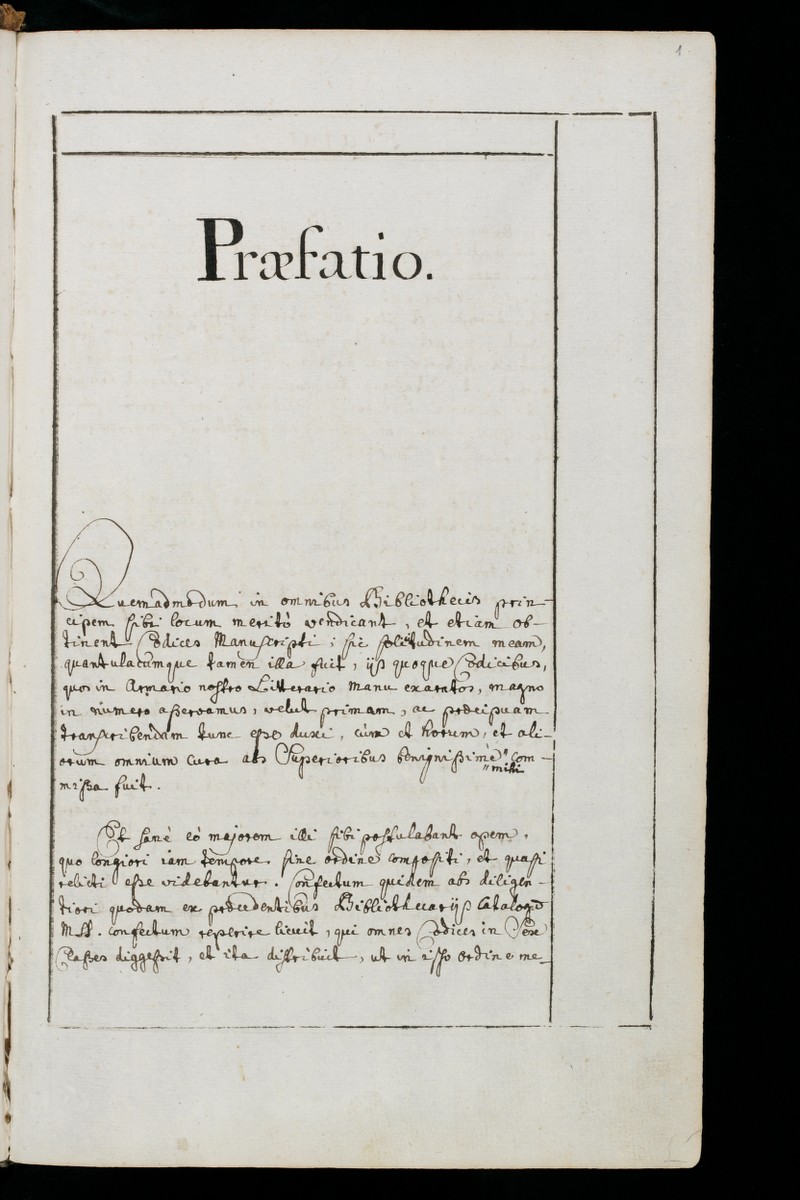 1
Præfatio.
Quemadmodum in omnibus Bibliothecis prin-
cipem sibi locum meritò vendicant, et etiam ob-
tinent Codices Manuscripti; sic solitudinem meam,
quantulacumque tamen illa fuit, ijs quoque Codicibus,
quos in Armario nostro Litterario manu exaratos, magno
in numero asservamus, velut primam, ac præcipuam
transcribendam tunc esse duxi, cùm et horum, et ali-
orum omnium cura abs Superioribus benignissimè com-
"mihi
missa fuit.
Et sanè eò majorem illi sibi postulabant opem,
quo longiori iam tempore sine ordine compositi, et quasi
relicti esse videbantur. Confectum quidem abs diligen-
tiori quodam ex præcedentibus Bibliothecarijs Catalogum
MSS. confectum reperire licuit, qui omnes Codices in
Classes diggessit, et ita distribuit, ut in ipso ordine me-